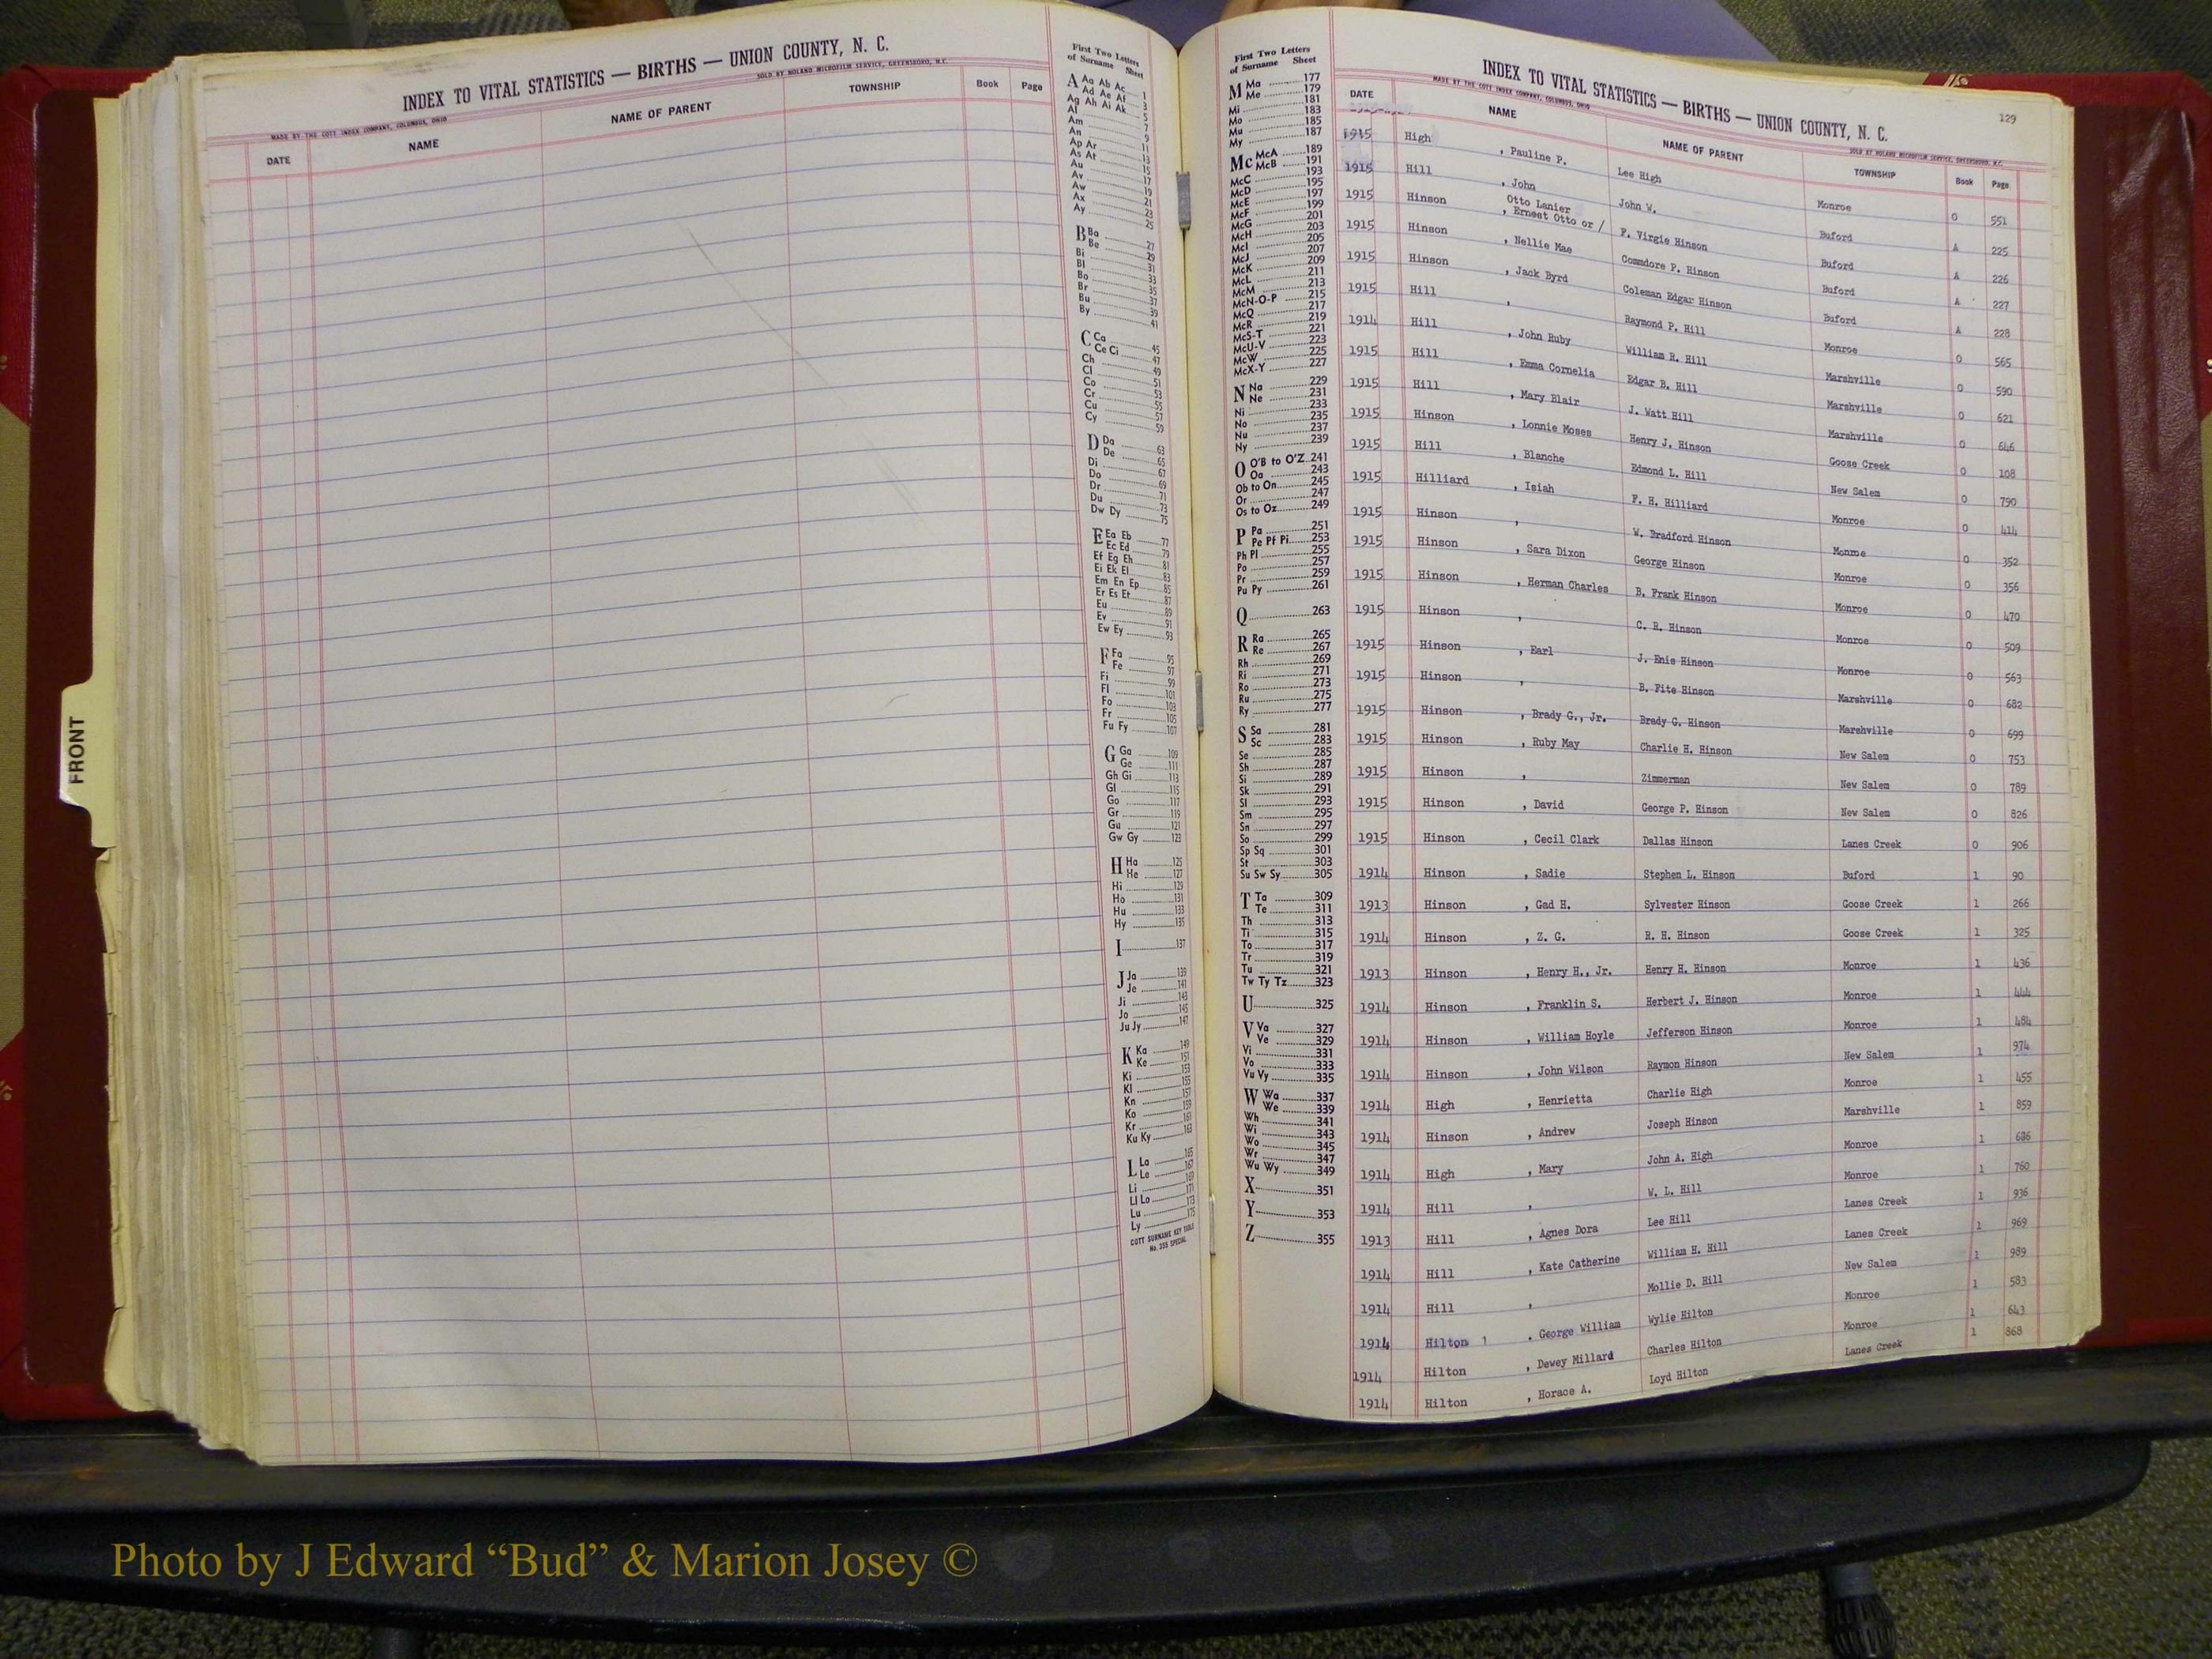 INDEX TO VITAL STATISTICS — BIRTHS — UNION COUNTY, N. C.
MADE BY THE COTT INDEX COMPANY, COLUMBUS, OHIO
SOLD BY NOLAND MICROFILM SERVICE, GREENSBORO, N.C.
DATE NAME NAME OF PARENT TOWNSHIP Book Page
First Two Letters
of Surname Sheet
A Aa Ab Ac 1
Ad Ae Af 3
Ag Ah Ai Ak 5
Al 7
Am 9
An 11
Ap Ar 13
As At 15
Au 17
Av 19
Aw 21
Ax 23
Ay 25
B Ba 27
Be 29
Bi 31
Bl 33
Bo 35
Br 37
Bu 39
By 41
C Ca 45
Ce Ci 47
Ch 49
Cl 51
Co 53
Cr 55
Cu 57
Cy 59
D Da 63
De 65
Di 67
Do 69
Dr 71
Du 73
Dw Dy 75
E Ea Eb 77
Ec Ed 79
Ef Eg Eh 81
Ei Ek El 83
Em En Ep 85
Er Es Et 87
Eu 89
Ev 91
Ew Ey 93
F Fa 95
Fe 97
Fi 99
Fl 101
Fo 103
Fr 105
Fu Fy 107
G Ga 109
Ge 111
Gh Gi 113
Gl 115
Go 117
Gr 119
Gu 121
Gw Gy 123
H Ha 125
He 127
Hi 129
Ho 131
Hu 133
Hy 135
I 137
J Ja 139
Je 141
Ji 143
Jo 145
Ju Jy 147
K Ka 149
Ke 151
Ki 153
Kl 155
Kn 157
Ko 159
Kr 161
Ku Ky 163
L La 165
Le 167
Li 169
Ll Lo 171
Lu 173
Ly 175
COTT SURNAME KEY TABLE
No. 355 SPECIAL
FRONT
First Two Letters
of Surname Sheet
M Ma 177
Me 179
Mi 181
Mo 183
Mu 185
My 187
Mc McA 189
McB 191
McC 193
McD 195
McE 197
McF 199
McG 201
McH 203
McI 205
McJ 207
McK 209
McL 211
McM 213
McN-O-P 215
McQ 217
McR 219
McS-T 221
McU-V 223
McW 225
McX-Y 227
N Na 229
Ne 231
Ni 233
No 235
Nu 237
Ny 239
O O'B to O'Z 241
Oa 243
Ob to On 245
Or 247
Os to Oz 249
P Pa 251
Pe Pf Pi 253
Ph Pl 255
Po 257
Pr 259
Pu Py 261
Q 263
R Ra 265
Re 267
Rh 269
Ri 271
Ro 273
Ru 275
Ry 277
S Sa 281
Sc 283
Se 285
Sh 287
Si 289
Sk 291
Sl 293
Sm 295
Sn 297
So 299
Sp Sq 301
St 303
Su Sw Sy 305
T Ta 309
Te 311
Th 313
Ti 315
To 317
Tr 319
Tu 321
Tw Ty Tz 323
U 325
V Va 327
Ve 329
Vi 331
Vo 333
Vu Vy 335
W Wa 337
We 339
Wh 341
Wi 343
Wo 345
Wr 347
Wu Wy 349
X 351
Y 353
Z 355
INDEX TO VITAL STATISTICS — BIRTHS — UNION COUNTY, N. C. 129
MADE BY THE COTT INDEX COMPANY, COLUMBUS, OHIO
SOLD BY NOLAND MICROFILM SERVICE, GREENSBORO, N.C.
DATE NAME NAME OF PARENT TOWNSHIP Book Page
1915 High , Pauline P. Lee High Monroe 0 551
1915 Hill , John John W. Buford A 225
Otto Lanier
1915 Hinson , Ernest Otto or / F. Virgie Hinson Buford A 226
1915 Hinson , Nellie Mae Commdore P. Hinson Buford A 227
1915 Hinson , Jack Byrd Coleman Edgar Hinson Buford A 228
1915 Hill , Raymond P. Hill Monroe 0 565
1914 Hill , John Ruby William R. Hill Marshville 0 590
1915 Hill , Emma Cornelia Edgar B. Hill Marshville 0 621
1915 Hill , Mary Blair J. Watt Hill Marshville 0 646
1915 Hinson , Lonnie Moses Henry J. Hinson Goose Creek 0 108
1915 Hill , Blanche Edmond L. Hill New Salem 0 790
1915 Hilliard , Isiah F. H. Hilliard Monroe 0 414
1915 Hinson , W. Bradford Hinson Monroe 0 352
1915 Hinson , Sara Dixon George Hinson Monroe 0 356
1915 Hinson , Herman Charles B. Frank Hinson Monroe 0 470
1915 Hinson , C. R. Hinson Monroe 0 509
1915 Hinson , Earl J. Enis Hinson Monroe 0 563
1915 Hinson , B. Fite Hinson Marshville 0 682
1915 Hinson , Brady G., Jr. Brady G. Hinson Marshville 0 699
1915 Hinson , Ruby May Charlie H. Hinson New Salem 0 753
1915 Hinson , Zimmerman New Salem 0 789
1915 Hinson , David George P. Hinson New Salem 0 826
1915 Hinson , Cecil Clark Dallas Hinson Lanes Creek 0 906
1914 Hinson , Sadie Stephen L. Hinson Buford 1 90
1913 Hinson , Gad H. Sylvester Hinson Goose Creek 1 266
1914 Hinson , Z. G. R. H. Hinson Goose Creek 1 325
1913 Hinson , Henry H., Jr. Henry H. Hinson Monroe 1 436
1914 Hinson , Franklin S. Herbert J. Hinson Monroe 1 444
1914 Hinson , William Hoyle Jefferson Hinson Monroe 1 484
1914 Hinson , John Wilson Raymon Hinson New Salem 1 974
1914 High , Henrietta Charlie High Monroe 1 455
1914 Hinson , Andrew Joseph Hinson Marshville 1 859
1914 High , Mary John A. High Monroe 1 686
1914 Hill , W. L. Hill Monroe 1 760
1913 Hill , Agnes Dora Lee Hill Lanes Creek 1 936
1914 Hill , Kate Catherine William H. Hill Lanes Creek 1 969
1914 Hill , Mollie D. Hill New Salem 1 989
1914 Hilton 1 , George William Wylie Hilton Monroe 1 583
1914 Hilton , Dewey Millard Charles Hilton Monroe 1 643
1914 Hilton , Horace A. Loyd Hilton Lanes Creek 1 868
Photo by J Edward “Bud” & Marion Josey ©